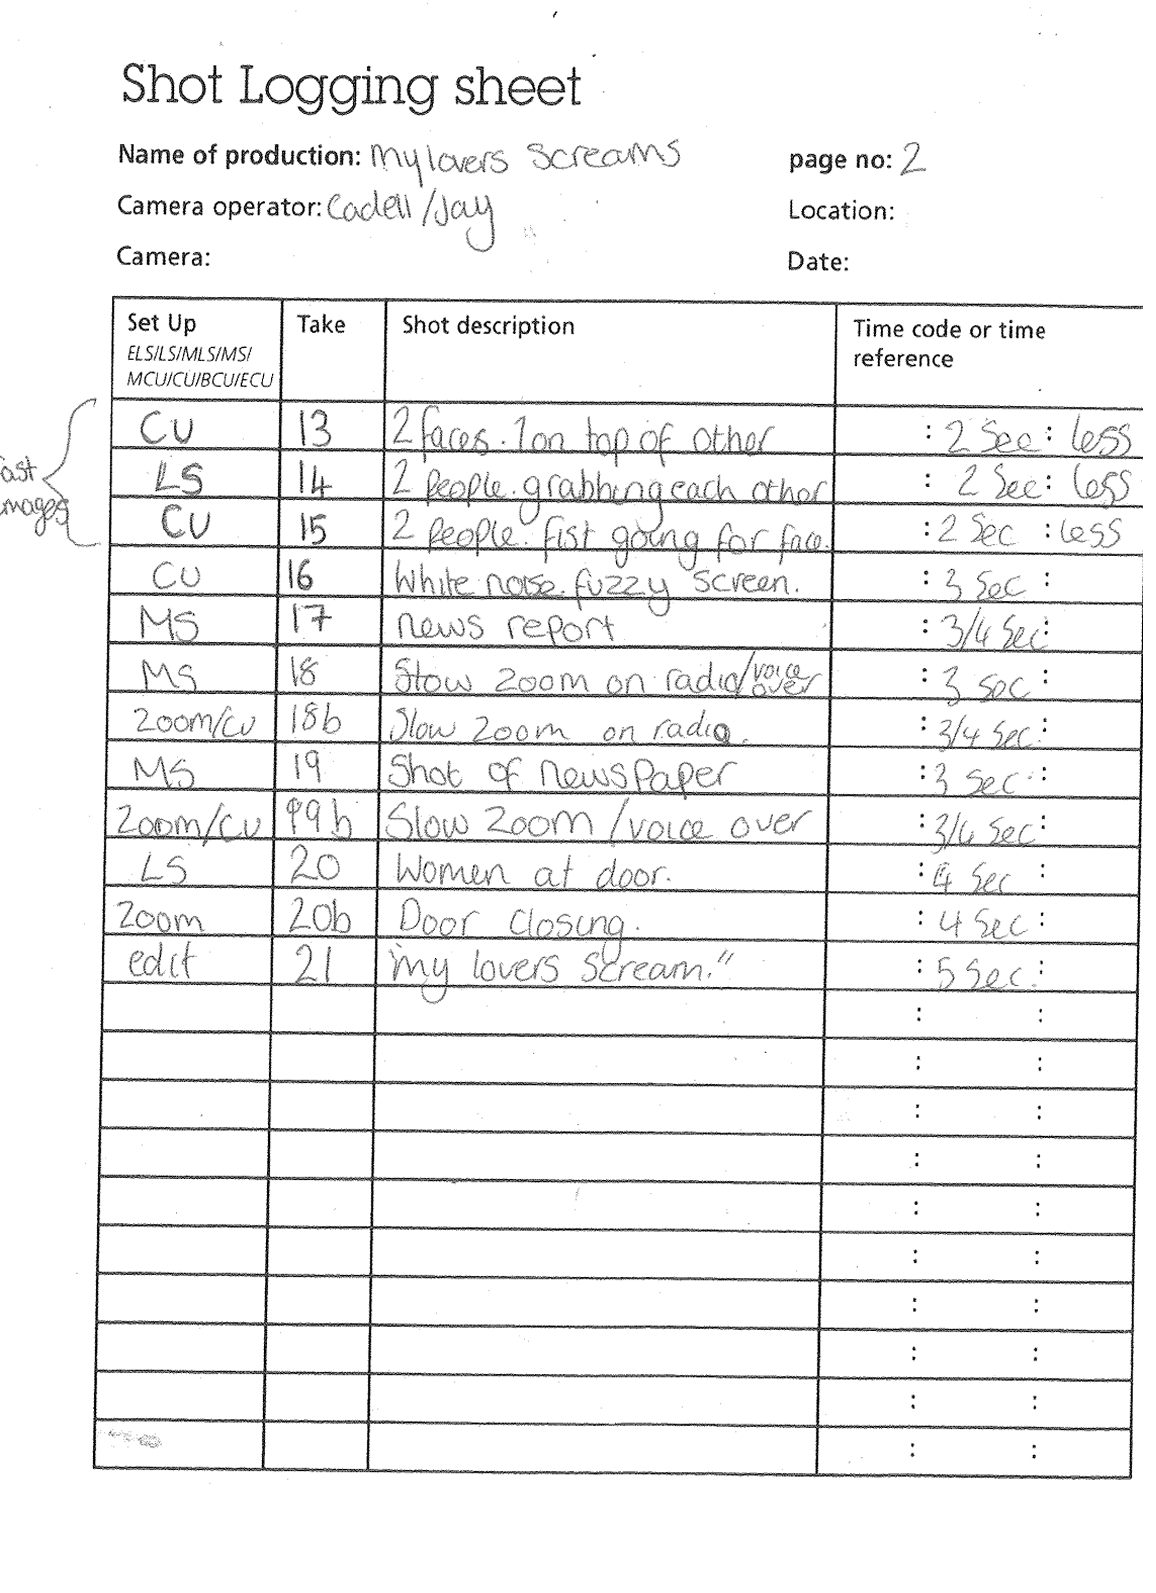 Shot Logging sheet
Name of production: My lovers screams page no: 2
Camera operator: Cadell/Jay Location:
Camera: Date:
Set Up Take Shot description Time code or time
ELS/LS/MLS/MS/ reference
MCU/CU/BCU/ECU
CU 13 2 faces. 1 on top of other : 2 Sec : less
LS 14 2 people. grabbing each other : 2 Sec : less
CU 15 2 people. fist going for face. : 2 Sec : less
ast
mages
CU 16 White noise. fuzzy screen. : 3 Sec :
MS 17 news report : 3/4 Sec :
MS 18 Slow zoom on radio/voice over : 3 sec :
zoom/cu 18b Slow zoom on radio. : 3/4 Sec. :
MS 19 Shot of newspaper : 3 sec. :
zoom/cu 19b Slow zoom/voice over : 3/4 Sec :
LS 20 Women at door. : 4 Sec :
zoom 20b Door closing. : 4 Sec :
edit 21 "my lovers scream." : 5 Sec. :
: :
: :
: :
: :
: :
: :
: :
: :
: :
: :